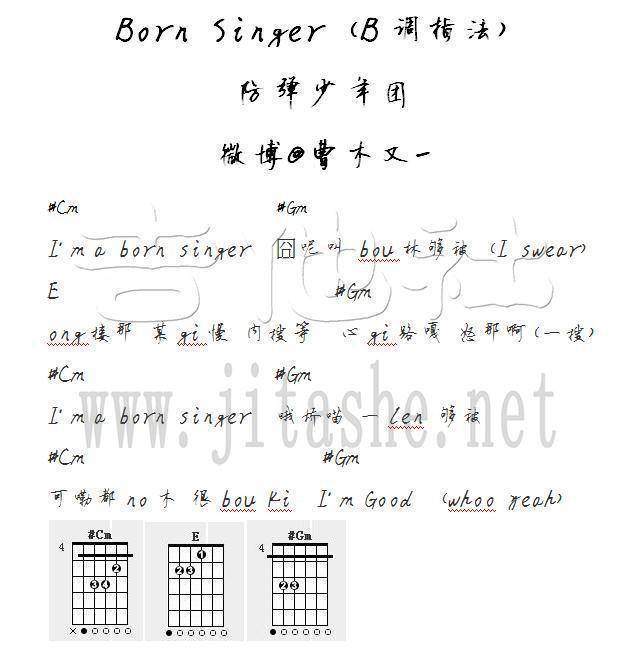 Born Singer (B调指法)
防弹少年团
微博@曹木又一
#Cm #Gm
I'm a born singer 囧呢叫 bou林够被 (I swear)
E #Gm
ong搂那 某gi慢 内搜等 心gi路嘎 怒那啊(一搜)
#Cm #Gm
I'm a born singer 哦桥喵 一len够被
#Cm #Gm
可嘞都no木 很bou Ki I'm Good (whoo yeah)
吉他社
www.jitashe.net
#Cm E #Gm
4 4
2 1
3 4 2 3 2 3
x